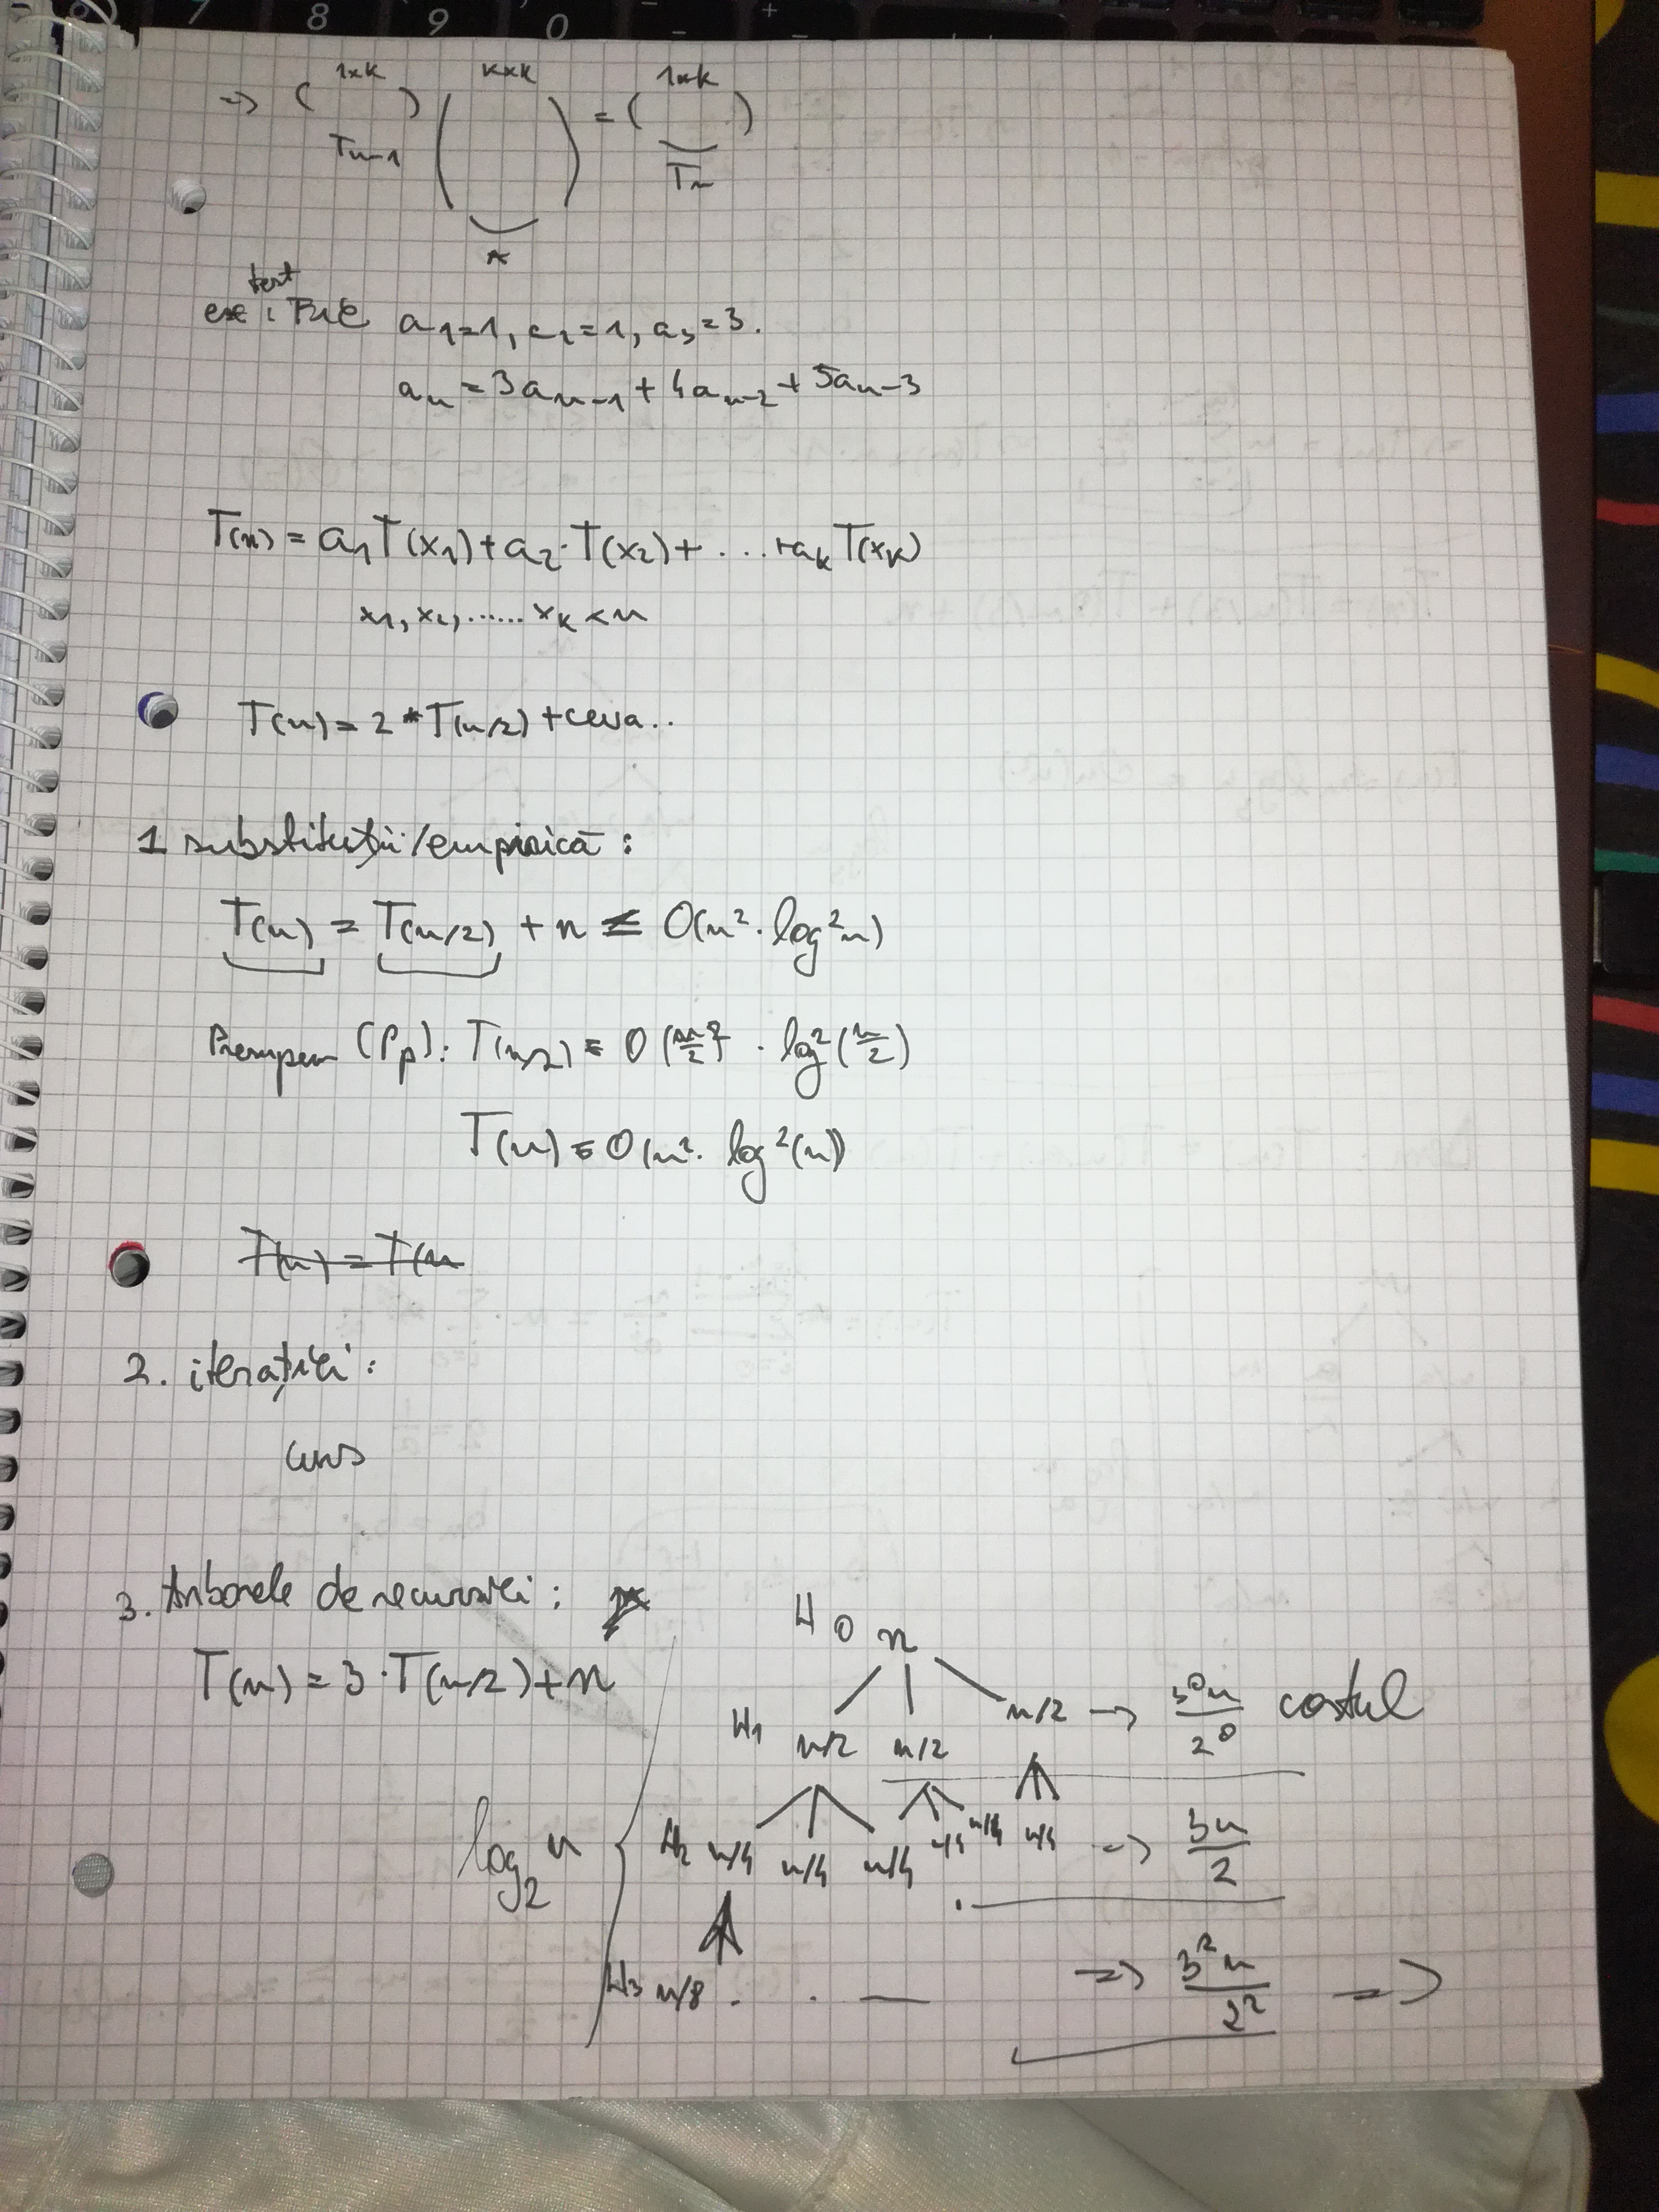 7 8 9 0 - +
1×k k×k 1×k
=> ( ) ( ) = ( )
Tn-1 Tn
A
test
ex: FIE a1=1, a2=1, a3=3.
an = 3an-1 + 4an-2 + 5an-3
T(n) = a1T(x1)+a2·T(x2)+ ...+akT(xk)
x1, x2, ...... xk < n
T(n) = 2 * T(n/2) + ceva..
1 substituții/empirică :
T(n) = T(n/2) + n ≤ O(n²·log²n)
Presupun (Pp): T(n/2) = O(n/2)² · log²(n/2)
T(n) = O(n²· log²(n))
T(n) = T(n
2. iterației :
curs
3. Arborele de recursiei :
T(n) = 3·T(n/2)+n
H0 n
H1 n/2 n/2 n/2 -> 3⁰n/2⁰ costul
log2 n
H2 n/4 n/4 n/4 n/4 n/4 n/4 => 3n/2
H3 n/8 . . — => 3²n/2² =>